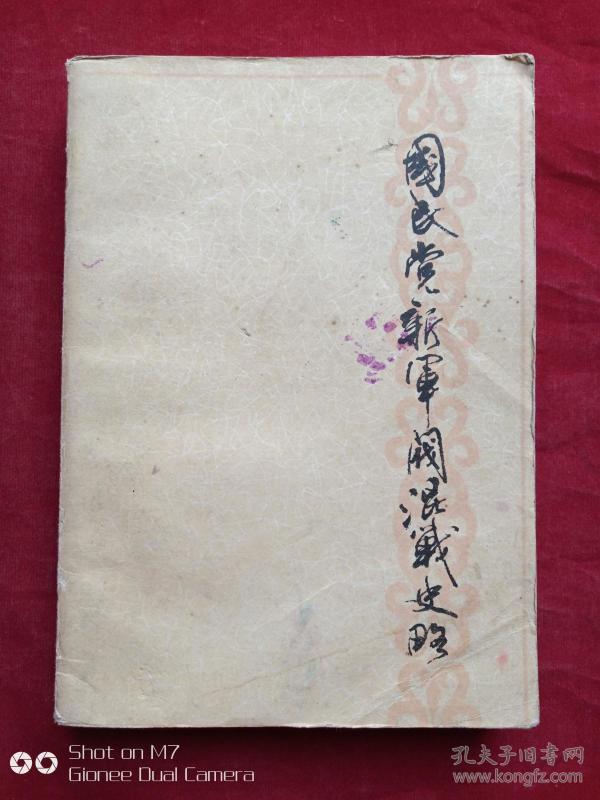 國民党新軍閥混戦史略
Shot on M7
Gionee Dual Camera
孔夫子旧书网
www.kongfz.com